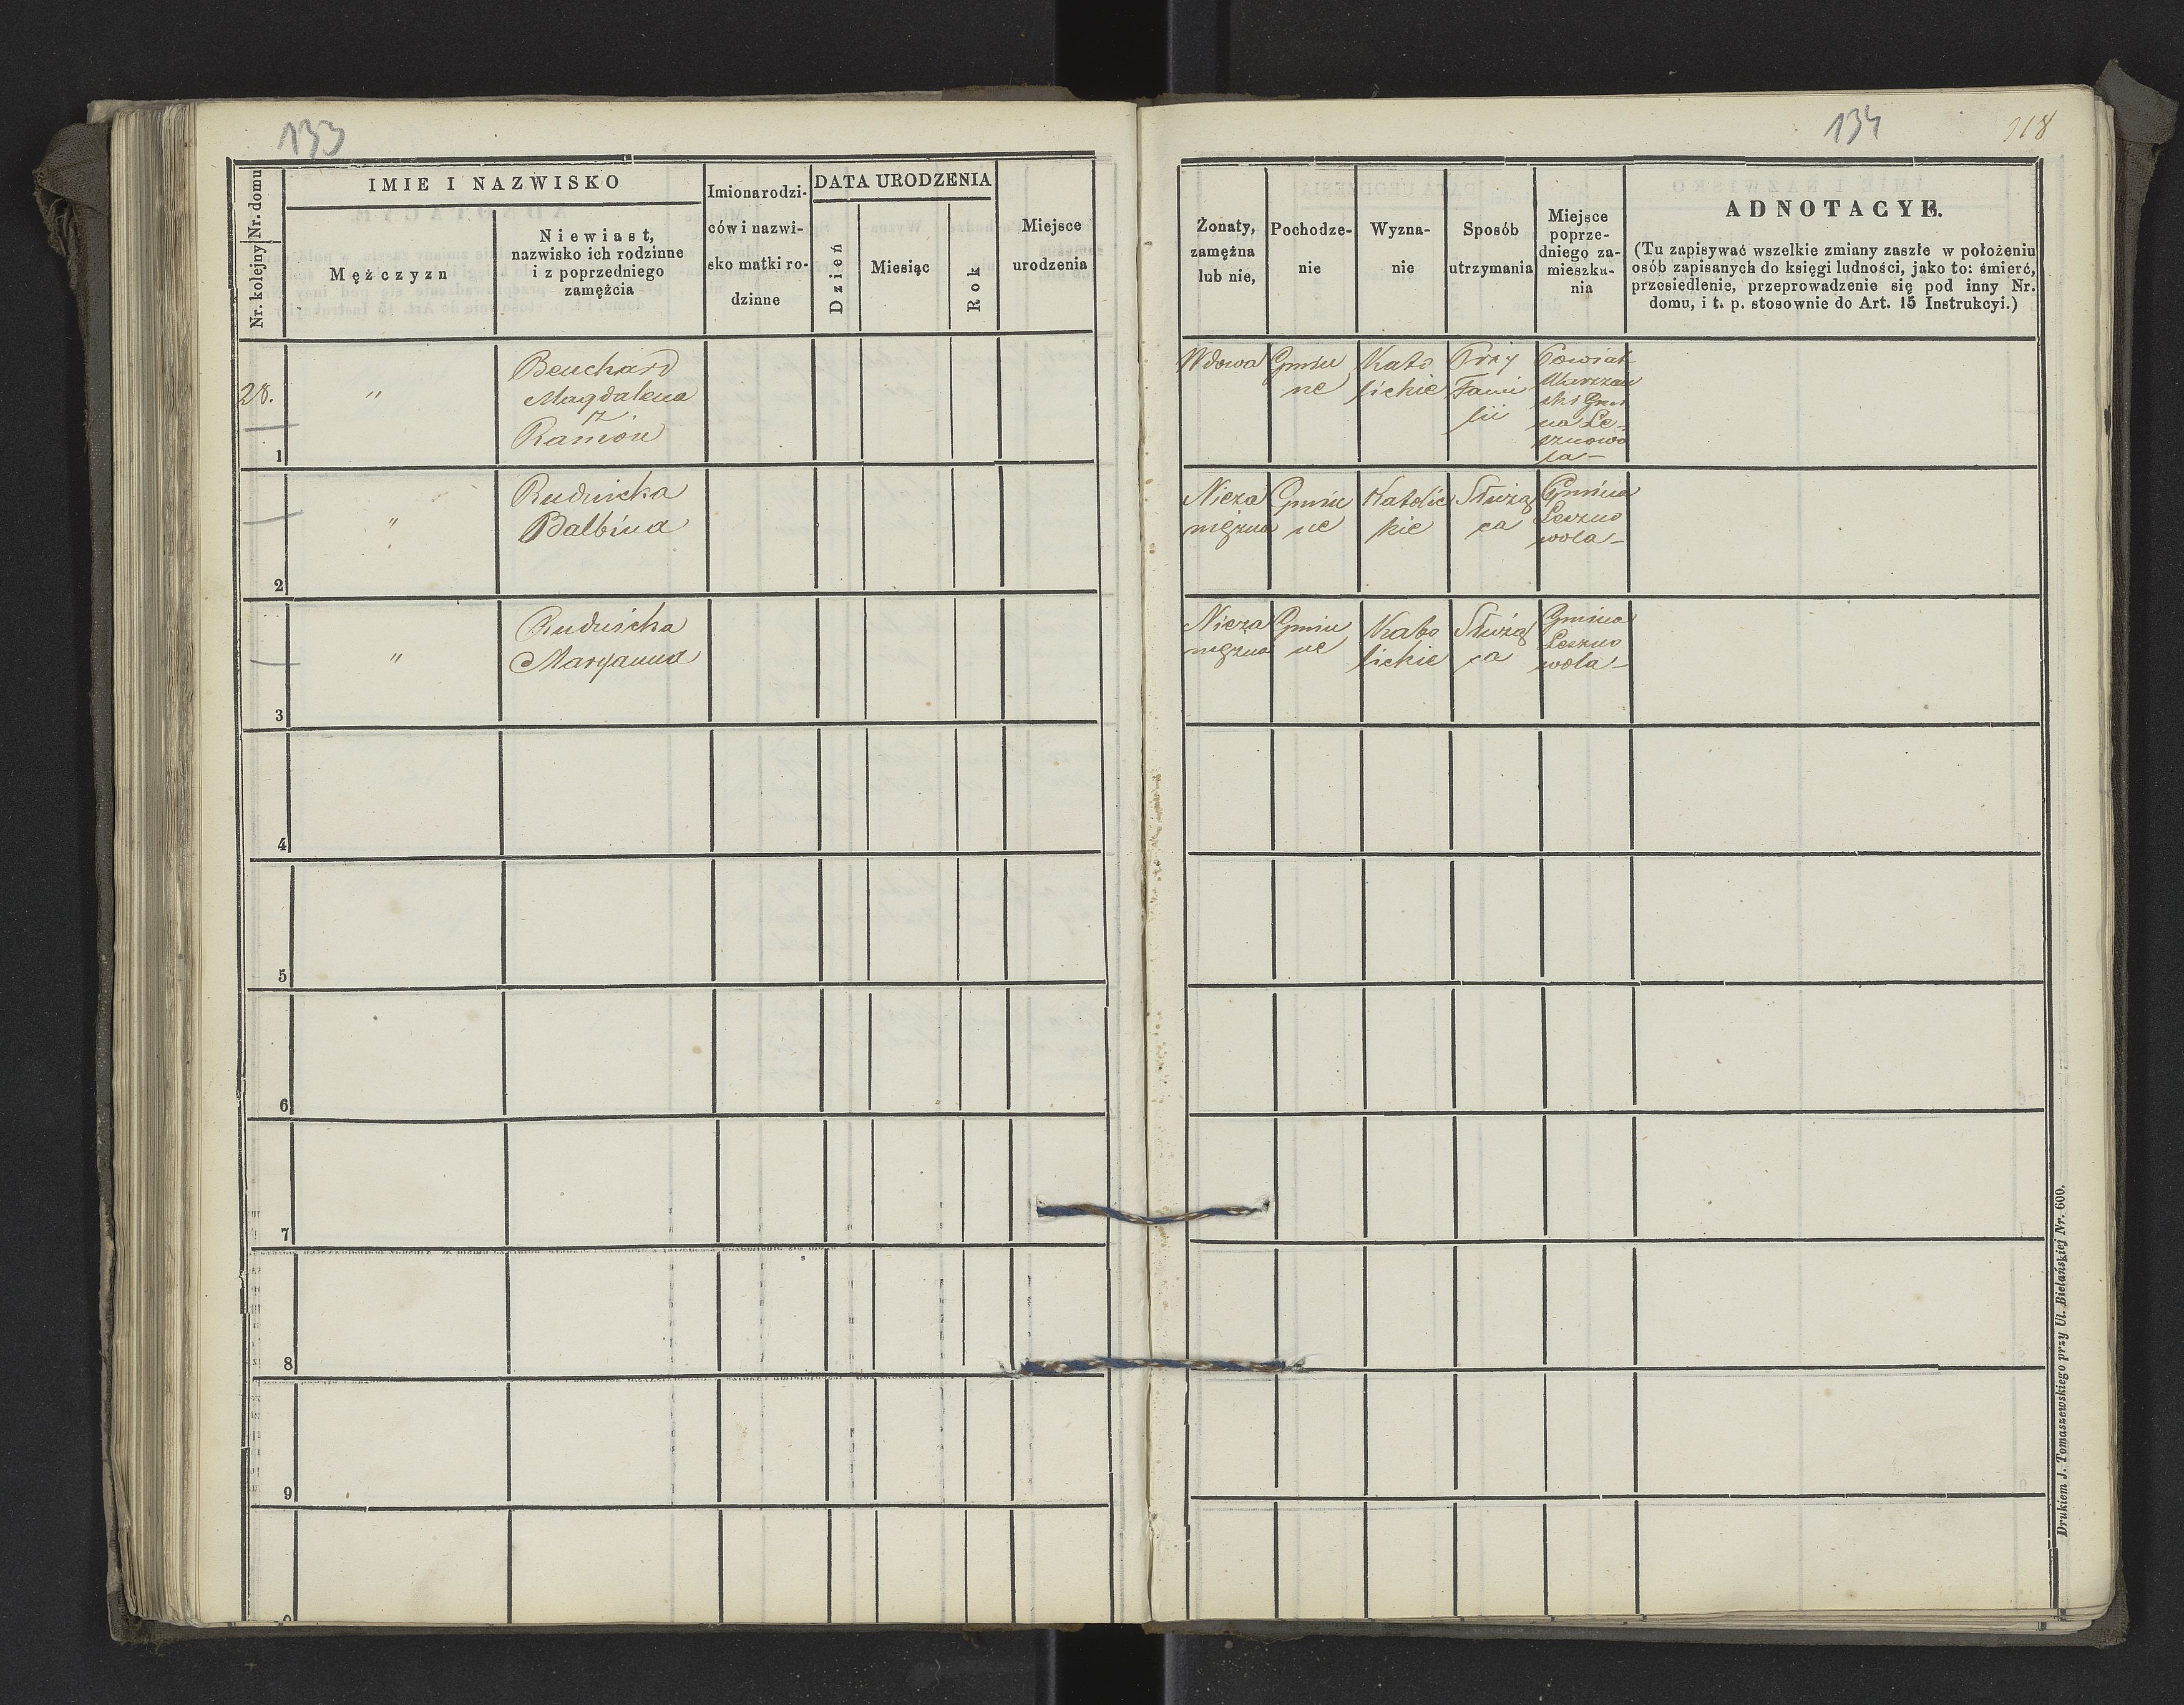 133
Nr. kolejny Nr. domu
IMIE I NAZWISKO
Mężczyzn
Niewiast,
nazwisko ich rodzinne
i z poprzedniego
zamęźcia
Imiona rodzi-
ców i nazwi-
sko matki ro-
dzinne
DATA URODZENIA
Dzień
Miesiąc
Rok
Miejsce
urodzenia
28.
1
"
Beuchard
Magdalena
z
Ramion
2
"
Rudnicka
Balbina
3
"
Rudnicka
Maryanna
4
5
6
7
8
9
134
118
Żonaty,
zamęźna
lub nie,
Pochodze-
nie
Wyzna-
nie
Sposób
utrzymania
Miejsce
poprze-
dniego za-
mieszka-
nia
ADNOTACYE.
(Tu zapisywać wszelkie zmiany zaszłe w położeniu
osób zapisanych do księgi ludności, jako to: śmierć,
przesiedlenie, przeprowadzenie się pod inny Nr.
domu, i t. p. stosownie do Art. 15 Instrukcyi.)
Wdowa
Gmin
ne
Kato
lickie
Przy
Fami
lii
Powiat
Warszaw
ski Gmi
na Le-
sznowo
la-
Nieza
mężna
Gmin
ne
Katolic
kie
Służą
ca
Gmina
Leszno
wola-
Nieza
mężna
Gmin
ne
Kato
lickie
Służą
ca
Gmina
Leszno
wola-
Drukiem J. Tomaszewskiego przy Ul. Bielańskiej Nr. 600.